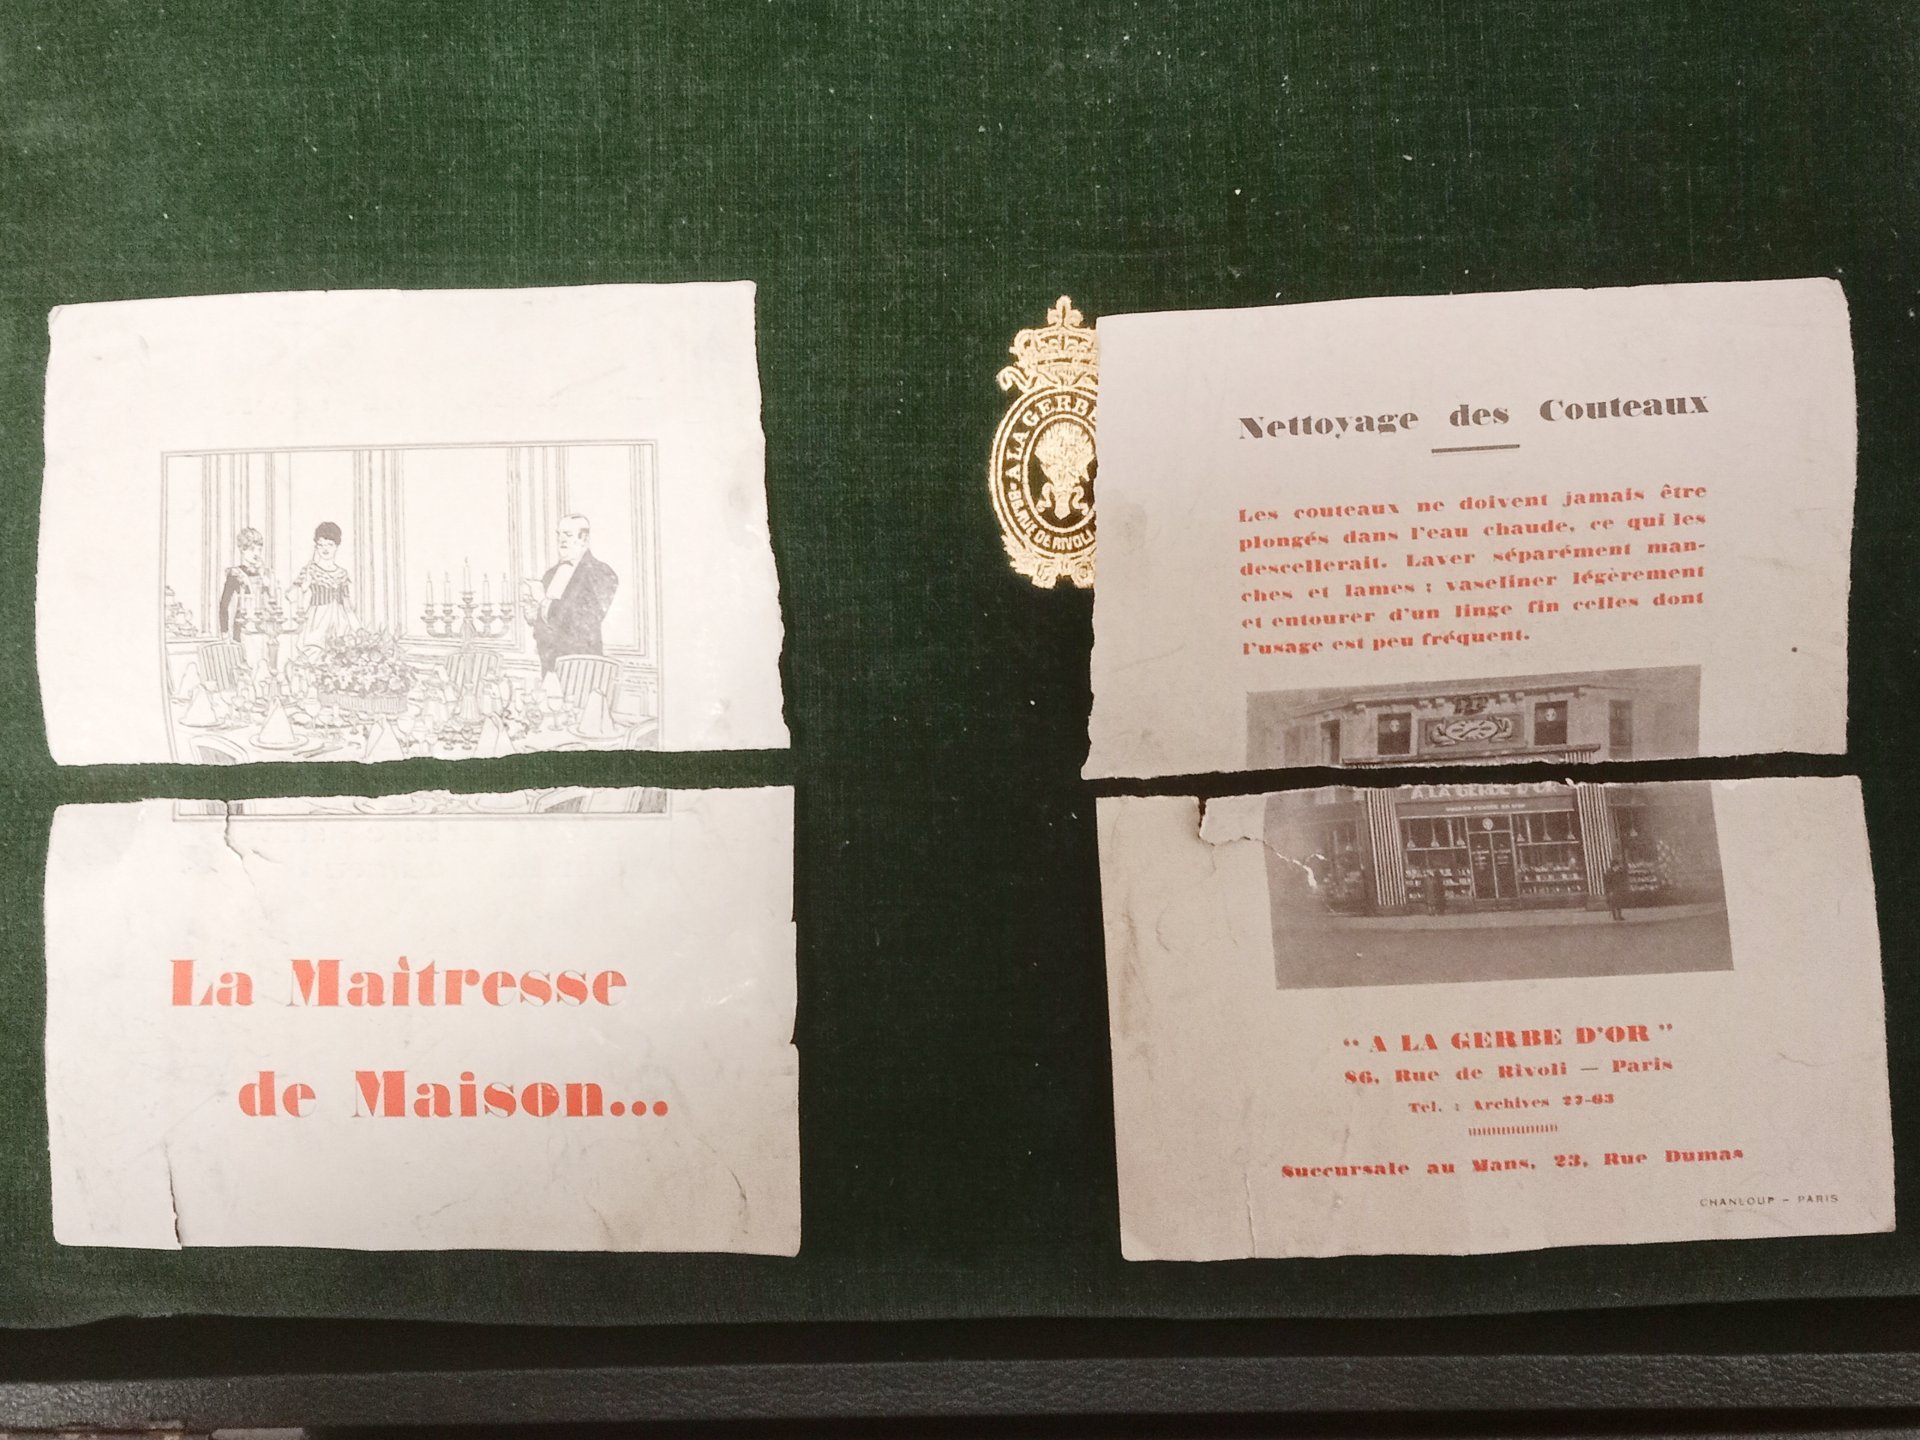 La Maîtresse
de Maison...
A LA GERBE
86, RUE DE RIVOLI
Nettoyage des Couteaux
Les couteaux ne doivent jamais être
plongés dans l'eau chaude, ce qui les
descellerait. Laver séparément man-
ches et lames ; vaseliner légèrement
et entourer d'un linge fin celles dont
l'usage est peu fréquent.
A LA GERBE D'OR
“ A LA GERBE D'OR ”
86, Rue de Rivoli — Paris
Tél. : Archives 27-63
Succursale au Mans, 23, Rue Dumas
CHANLOUP - PARIS